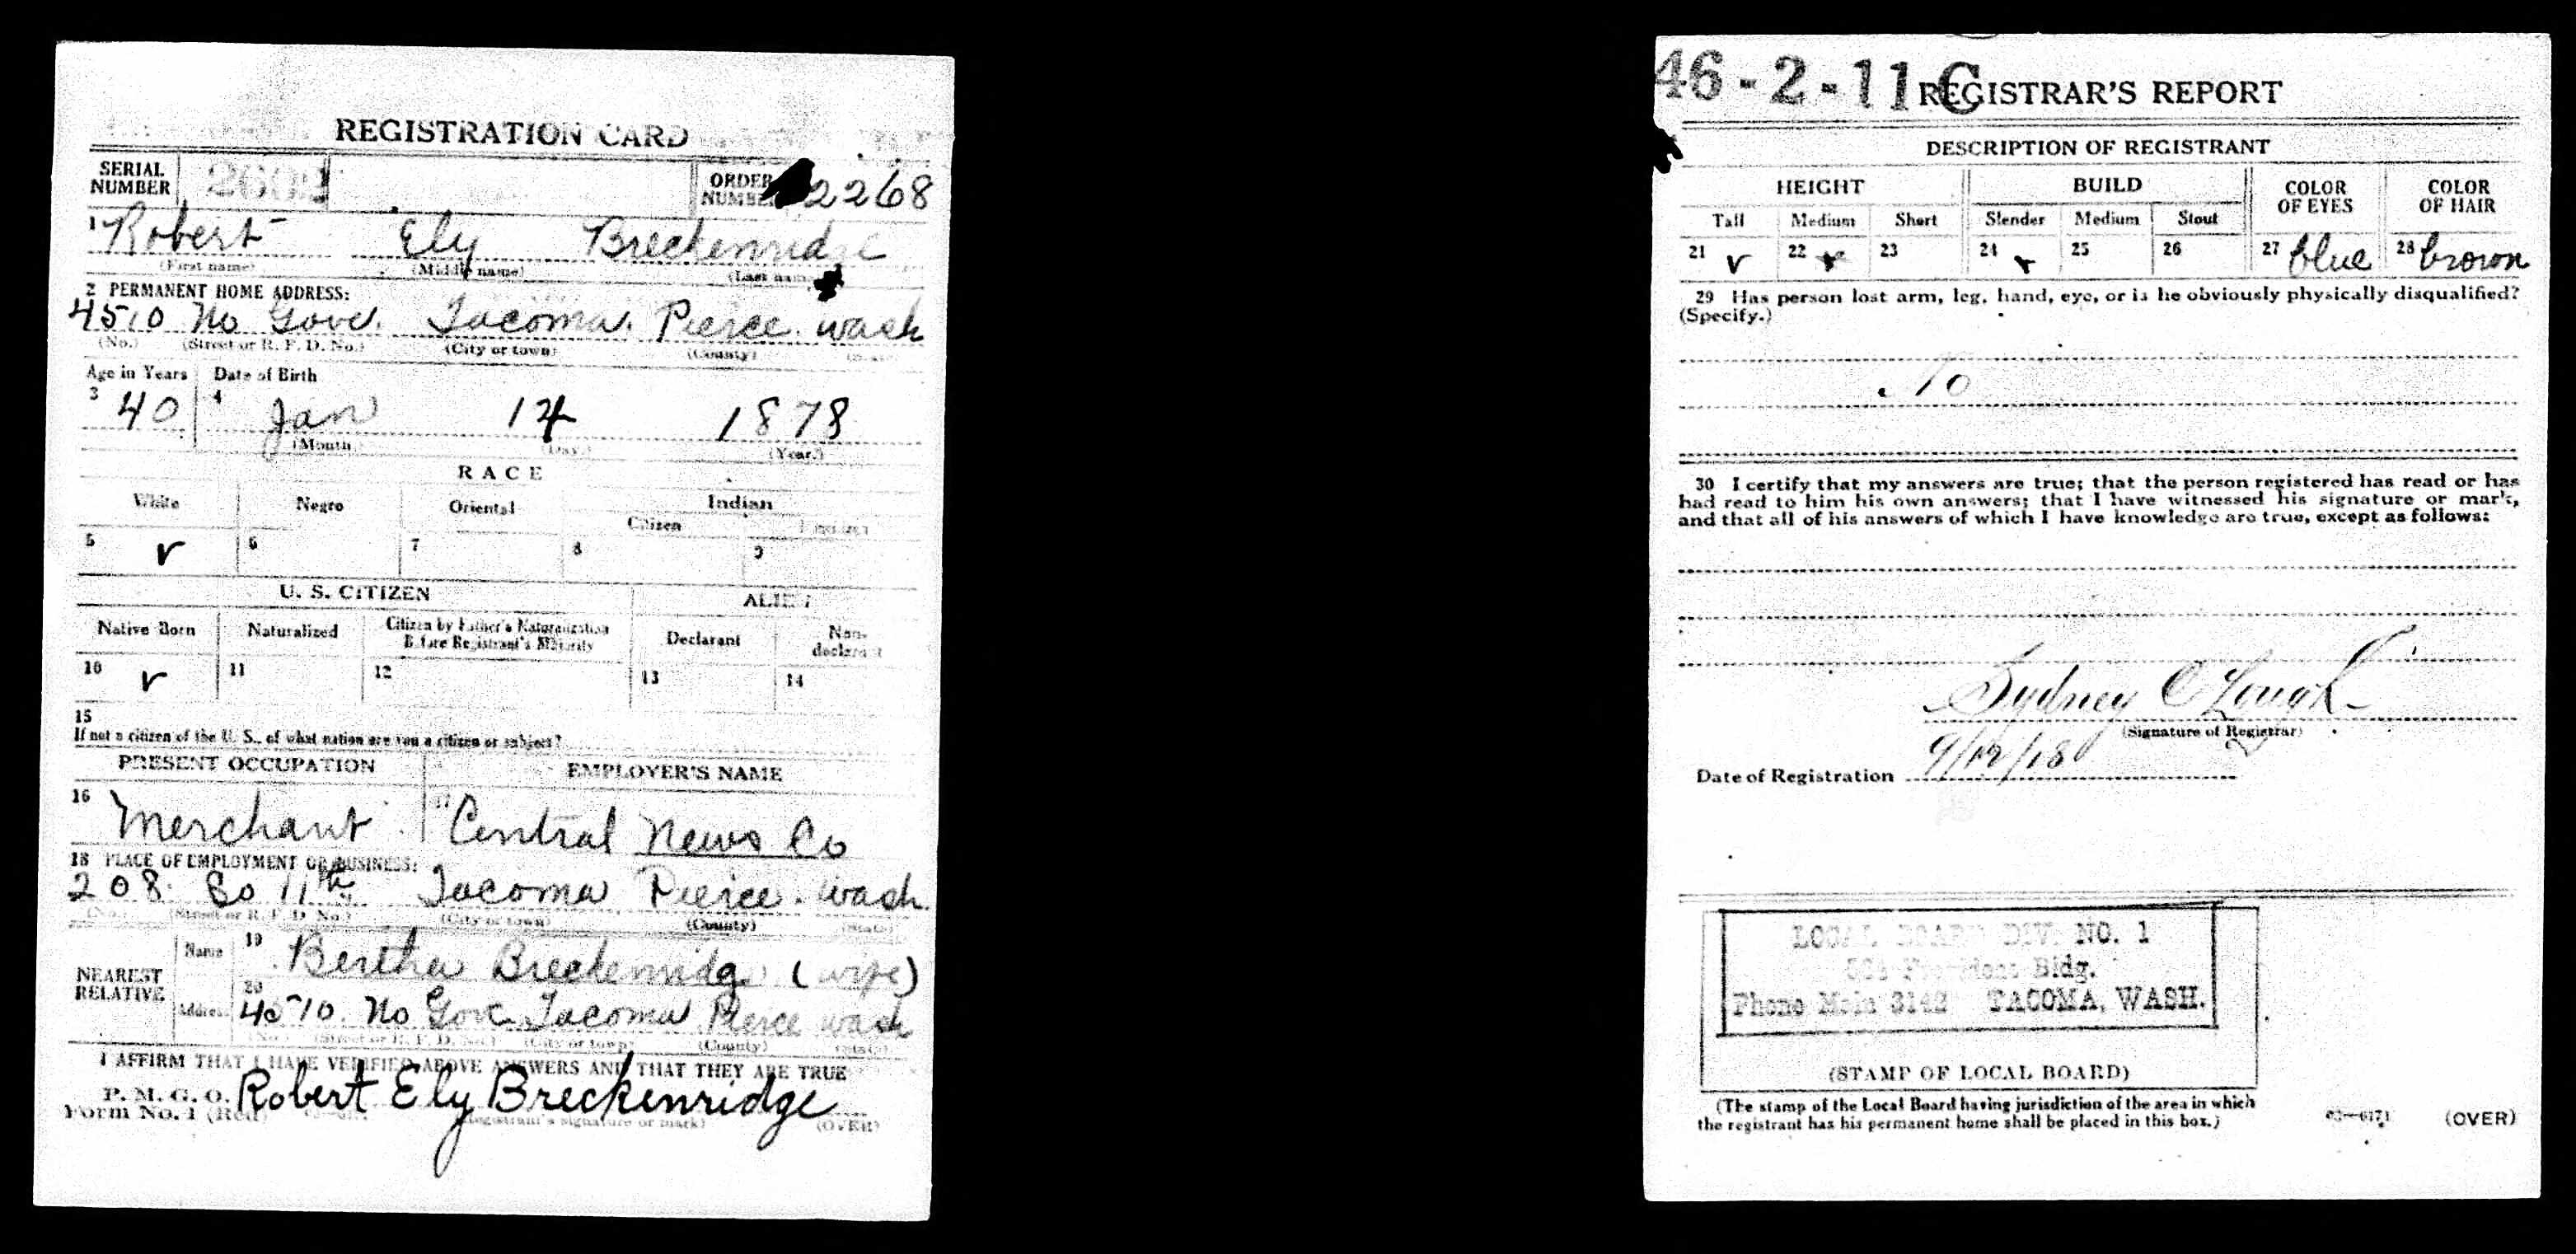 REGISTRATION CARD
SERIAL NUMBER
ORDER NUMBER 2268
1 Robert Ely Breckenridge
(First name) (Middle name) (Last name)
2 PERMANENT HOME ADDRESS:
4510 No Gove. Tacoma. Pierce. wash
(No.) (Street or R. F. D. No.) (City or town) (County) (State)
Age in Years Date of Birth
3 40 4 Jan 14 1878
(Month) (Day.) (Year.)
RACE
White Negro Oriental Indian
Citizen
5 v 6 7 8 9
U. S. CITIZEN ALIEN
Native Born Naturalized Citizen by Father's Naturalization Before Registrant's Majority Declarant Non-declarant
10 v 11 12 13 14
15
If not a citizen of the U. S., of what nation are you a citizen or subject?
PRESENT OCCUPATION EMPLOYER'S NAME
16 Merchant 17 Central News Co
18 PLACE OF EMPLOYMENT OR BUSINESS:
208 So 11th Tacoma Pierce. wash.
(No.) (Street or R. F. D. No.) (City or town) (County) (State)
NEAREST RELATIVE
Name 19 Bertha Breckenridg (wife)
Address 20 4510. No Gove Tacoma Pierce wash
(No.) (Street or R. F. D. No.) (City or town) (County) (State)
I AFFIRM THAT I HAVE VERIFIED ABOVE ANSWERS AND THAT THEY ARE TRUE
P. M. G. O.
Form No. 1 (Red) Robert Ely Breckenridge
(Registrant's signature or mark) (OVER)
46-2-11 C
REGISTRAR'S REPORT
DESCRIPTION OF REGISTRANT
HEIGHT BUILD COLOR OF EYES COLOR OF HAIR
Tall Medium Short Slender Medium Stout
21 v 22 23 24 v 25 26 27 blue 28 brown
29 Has person lost arm, leg, hand, eye, or is he obviously physically disqualified?
(Specify.)
No
30 I certify that my answers are true; that the person registered has read or has
had read to him his own answers; that I have witnessed his signature or mark,
and that all of his answers of which I have knowledge are true, except as follows:
Sydney C
(Signature of Registrar)
Date of Registration 9/12/18
LOCAL BOARD DIV. NO. 1
Bldg.
Phone Main 3142 TACOMA, WASH.
(STAMP OF LOCAL BOARD)
(The stamp of the Local Board having jurisdiction of the area in which
the registrant has his permanent home shall be placed in this box.)
(OVER)